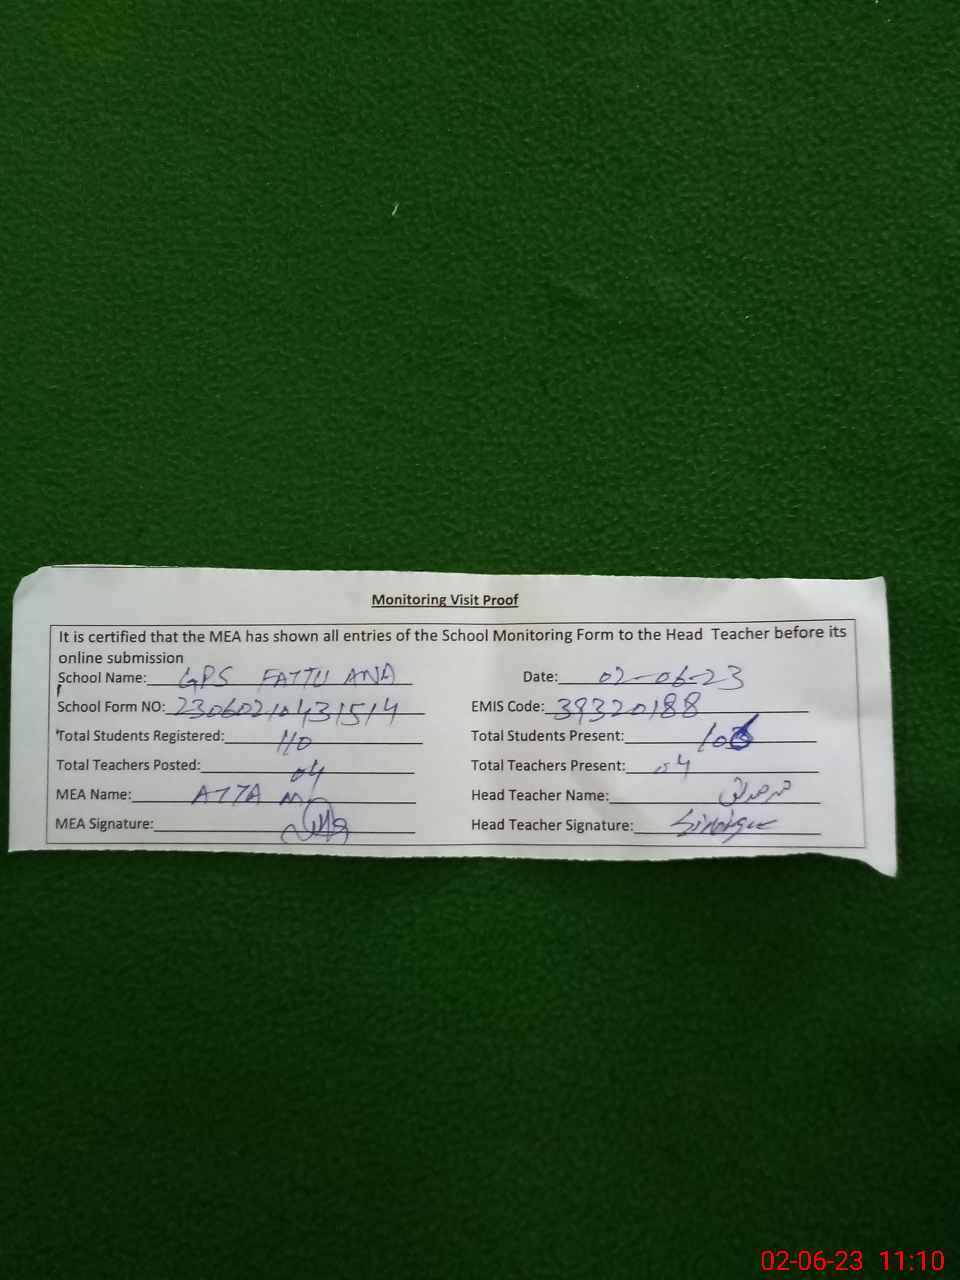 Monitoring Visit Proof
It is certified that the MEA has shown all entries of the School Monitoring Form to the Head Teacher before its
online submission
School Name: GPS FATTU ANA Date: 02-06-23
School Form NO: 23060210431514 EMIS Code: 39320188
Total Students Registered: 110 Total Students Present: 106
Total Teachers Posted: 04 Total Teachers Present: 04
MEA Name: ATTA M Head Teacher Name:
MEA Signature: Head Teacher Signature:
02-06-23 11:10